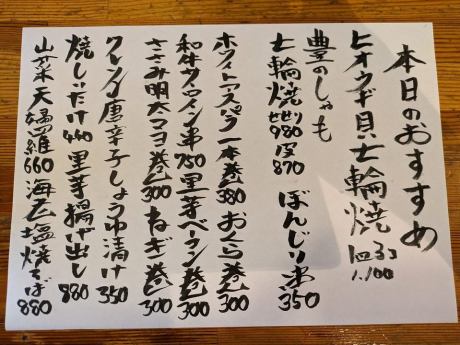 本日のおすすめ
ヒオウギ貝七輪焼 1皿3コ 1.100
豊のしゃも
七輪焼 せせり980 皮870 ぼんじり串350
ホワイトアスパラ一本巻380 おくら巻300
和牛サーロイン串750 里芋ベーコン巻300
ささみ明太マヨ巻300 ねぎ巻300
クレソン唐辛子しょうゆ漬け350
焼しいたけ440 里芋揚げ出し880
山菜天婦羅660 海老塩焼そば880